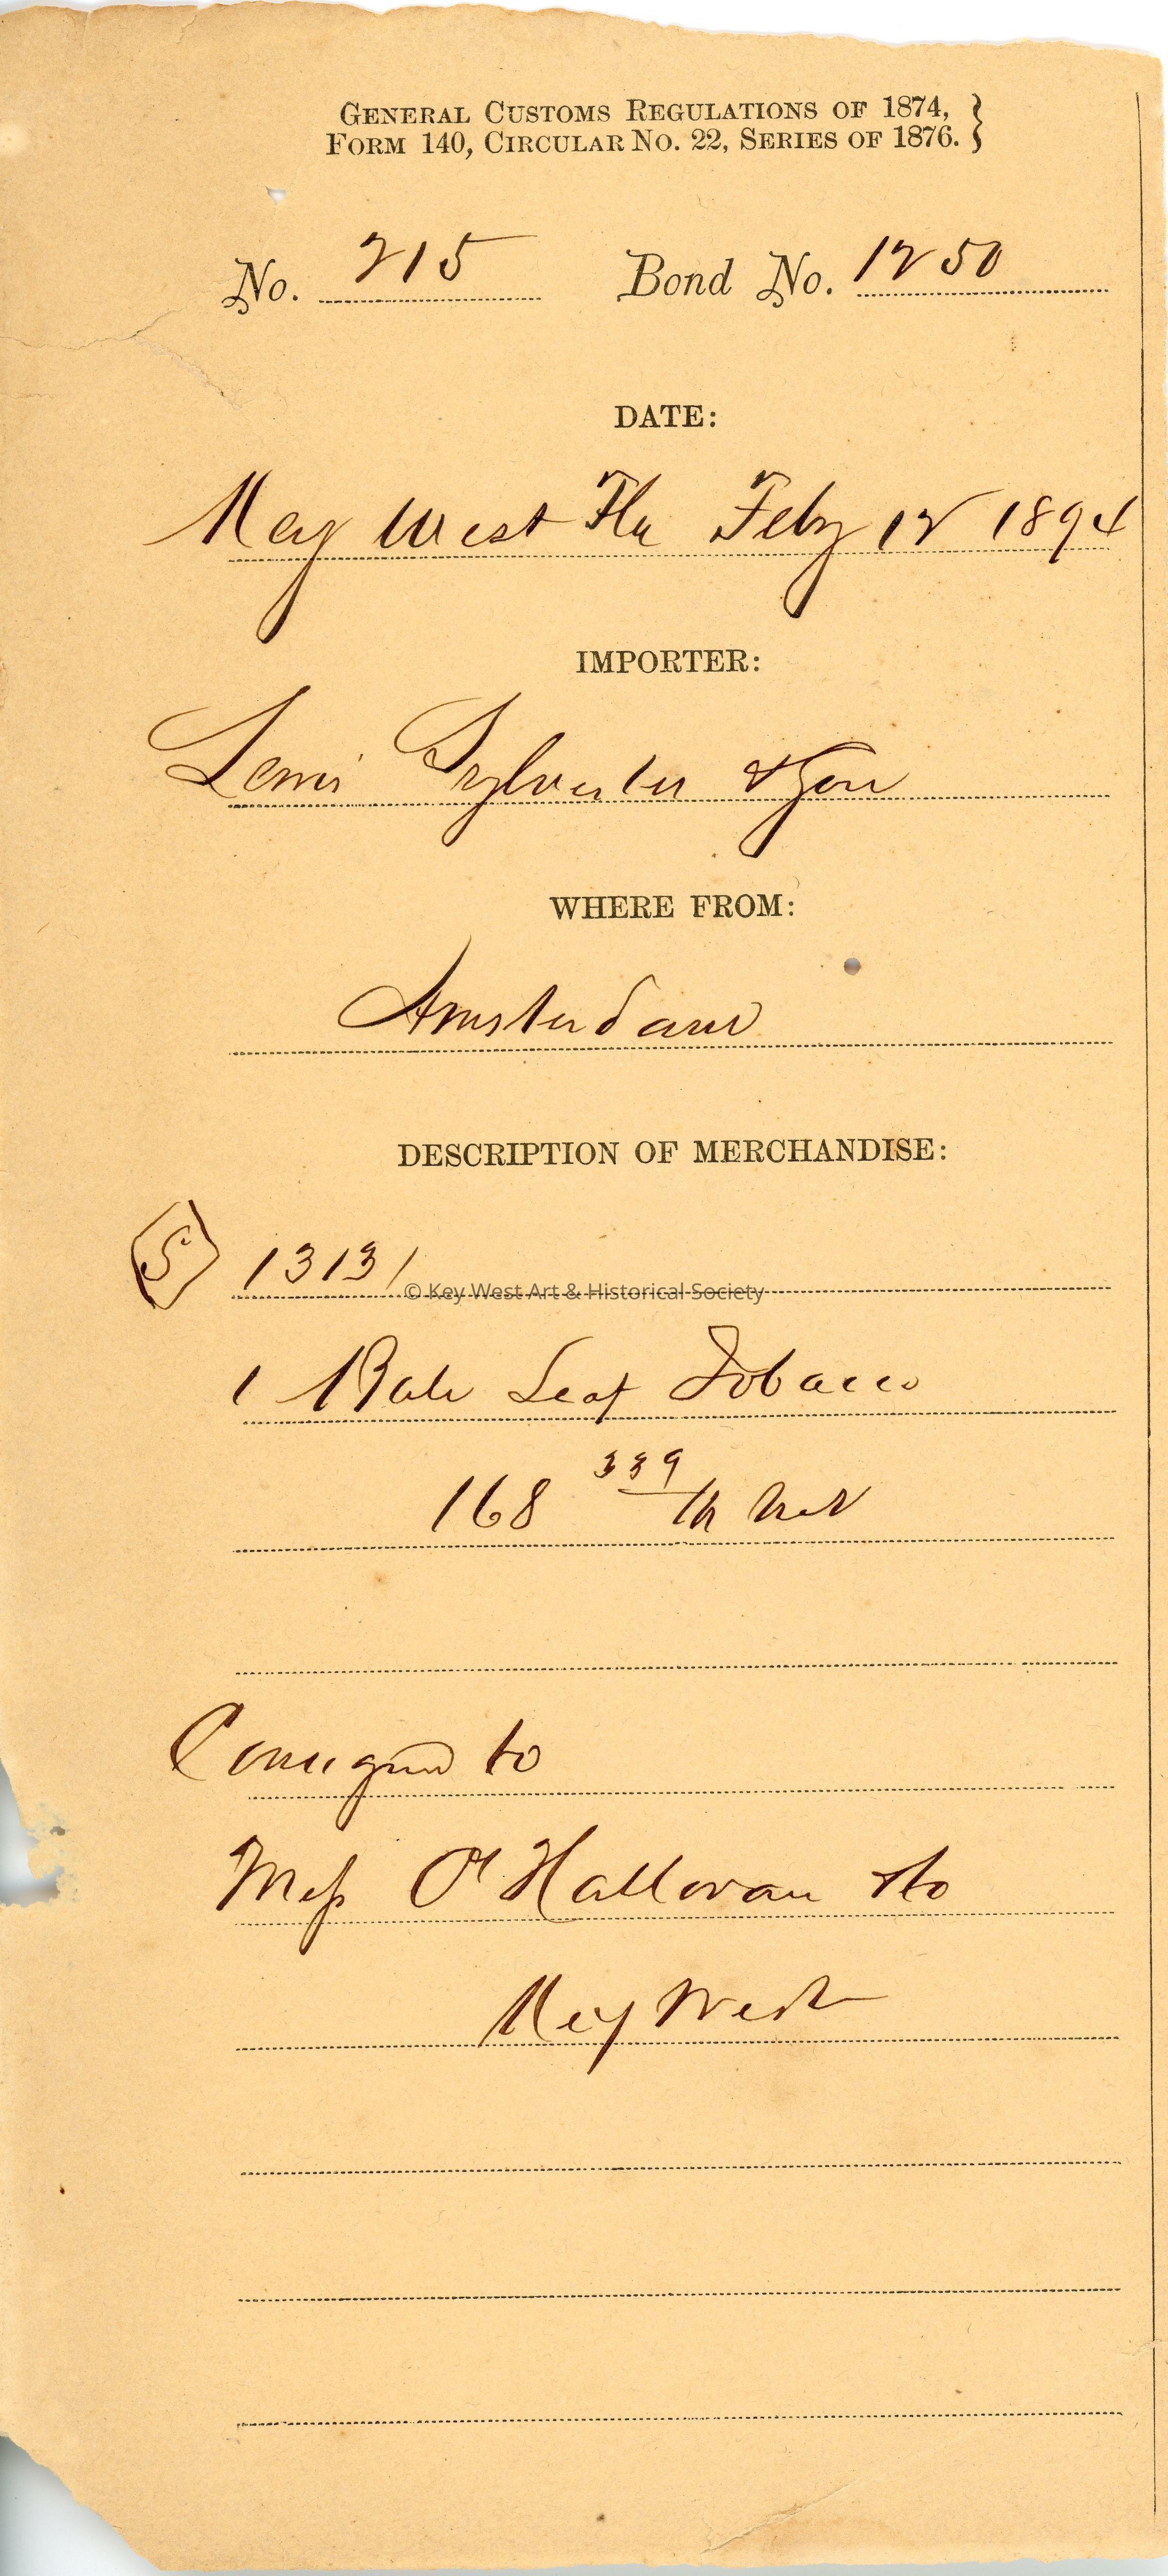 GENERAL CUSTOMS REGULATIONS OF 1874, }
FORM 140, CIRCULAR NO. 22, SERIES OF 1876. }
No. 215 Bond No. 1250
DATE:
Key West Fla Feby 12 1894
IMPORTER:
Lewis Sylvester & Son
WHERE FROM:
Amsterdam
DESCRIPTION OF MERCHANDISE:
S 13131
© Key West Art & Historical Society
1 Bale Leaf Tobacco
168 339 net
Consigned to
Mess O'Halloran & Co
Key West